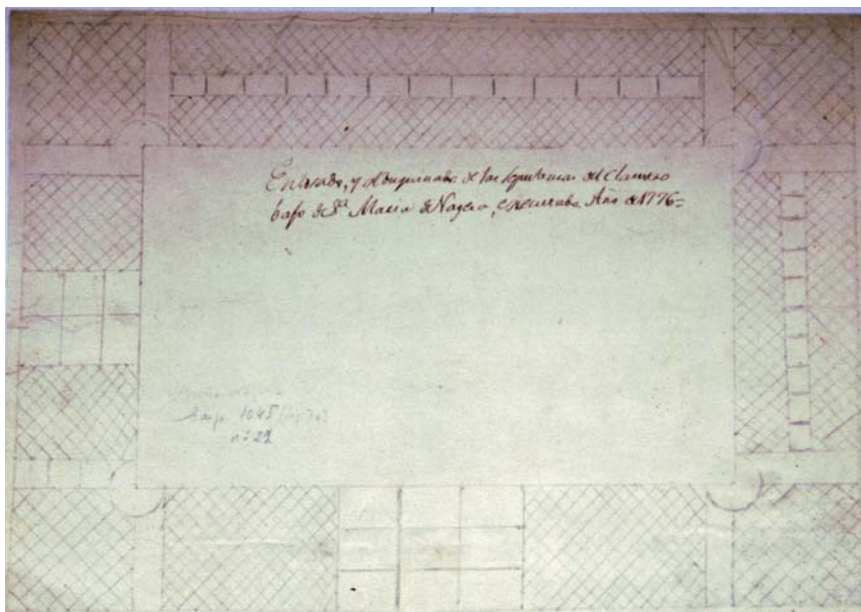 Enlosado, y de las sepulturas del Claustro
bajo de Sta. Maria de Nagera, executado Año de 1776=
Leg. 1045
nº 29